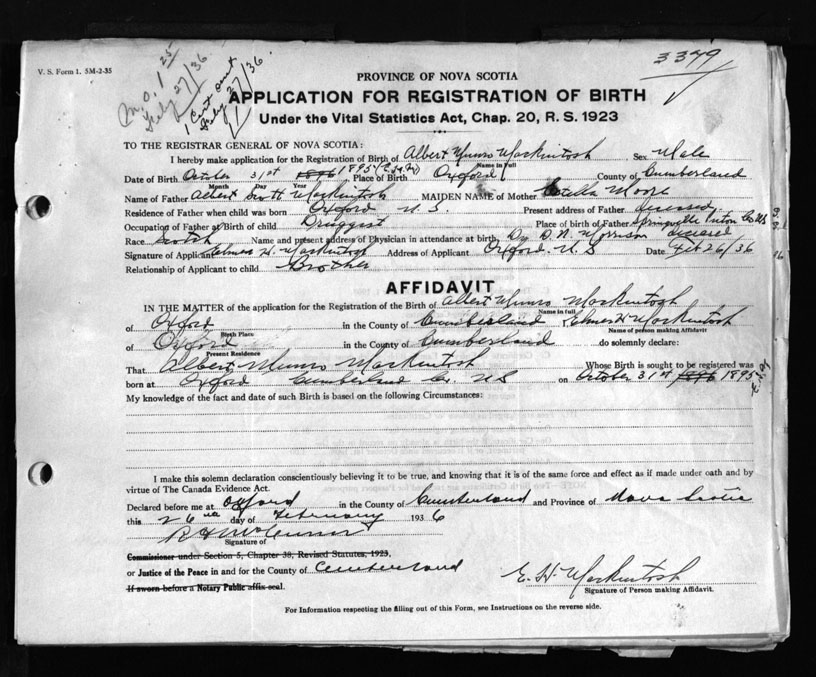 V. S. Form 1. 5M-2-35
3379
M.O. 1 25
July 27/36
1 Cert sent
July 27/36
PROVINCE OF NOVA SCOTIA
APPLICATION FOR REGISTRATION OF BIRTH
Under the Vital Statistics Act, Chap. 20, R. S. 1923
TO THE REGISTRAR GENERAL OF NOVA SCOTIA:
I hereby make application for the Registration of Birth of Albert Munro Mackintosh Sex Male
Name in Full
Date of Birth October 31st 1896 1895 Place of Birth Oxford County of Cumberland
Month Day Year
Name of Father Albert Scott Mackintosh MAIDEN NAME of Mother Estella Moore
Residence of Father when child was born Oxford N.S. Present address of Father deceased
Occupation of Father at Birth of child Druggist Place of birth of Father Springville Picton Co NS
Race Scotch Name and present address of Physician in attendance at birth Dr D. N. Morrison deceased
Signature of Applicant Elmer H. Mackintosh Address of Applicant Oxford. N.S Date Feb 26/36
Relationship of Applicant to child Brother
AFFIDAVIT
IN THE MATTER of the application for the Registration of the Birth of Albert Munro Mackintosh
Name in full
of Oxford in the County of Cumberland Elmer H Mackintosh
Birth Place Name of person making Affidavit
of Oxford in the County of Cumberland do solemnly declare:
Present Residence
That Albert Munro Mackintosh Whose Birth is sought to be registered was
born at Oxford Cumberland Co. NS on October 31st 1896 1895
My knowledge of the fact and date of such Birth is based on the following Circumstances:
I make this solemn declaration conscientiously believing it to be true, and knowing that it is of the same force and effect as if made under oath and by
virtue of The Canada Evidence Act.
Declared before me at Oxford in the County of Cumberland and Province of Nova Scotia
this 26 day of February 1936
Signature of
Commissioner under Section 5, Chapter 38, Revised Statutes, 1923.
or Justice of the Peace in and for the County of Cumberland
If sworn before a Notary Public affix seal.
E. H. Mackintosh
Signature of Person making Affidavit.
For Information respecting the filling out of this Form, see Instructions on the reverse side.